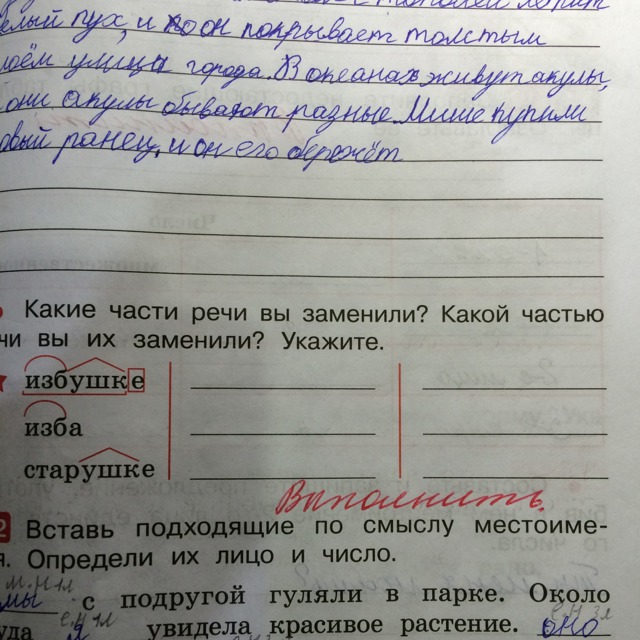 елый пух, и он покрывает толстым
лоём улицы города. В океанах живут акулы,
они акулы бывают разные. Мише купили
овый ранец, и он его бережёт
Какие части речи вы заменили? Какой частью
чи вы их заменили? Укажите.
избушке
изба
старушке
Выполнить.
2 Вставь подходящие по смыслу местоиме-
я. Определи их лицо и число.
м.н 1л
мы с подругой гуляли в парке. Около
е.н 1л е.н 3л
уда я увидела красивое растение. оно